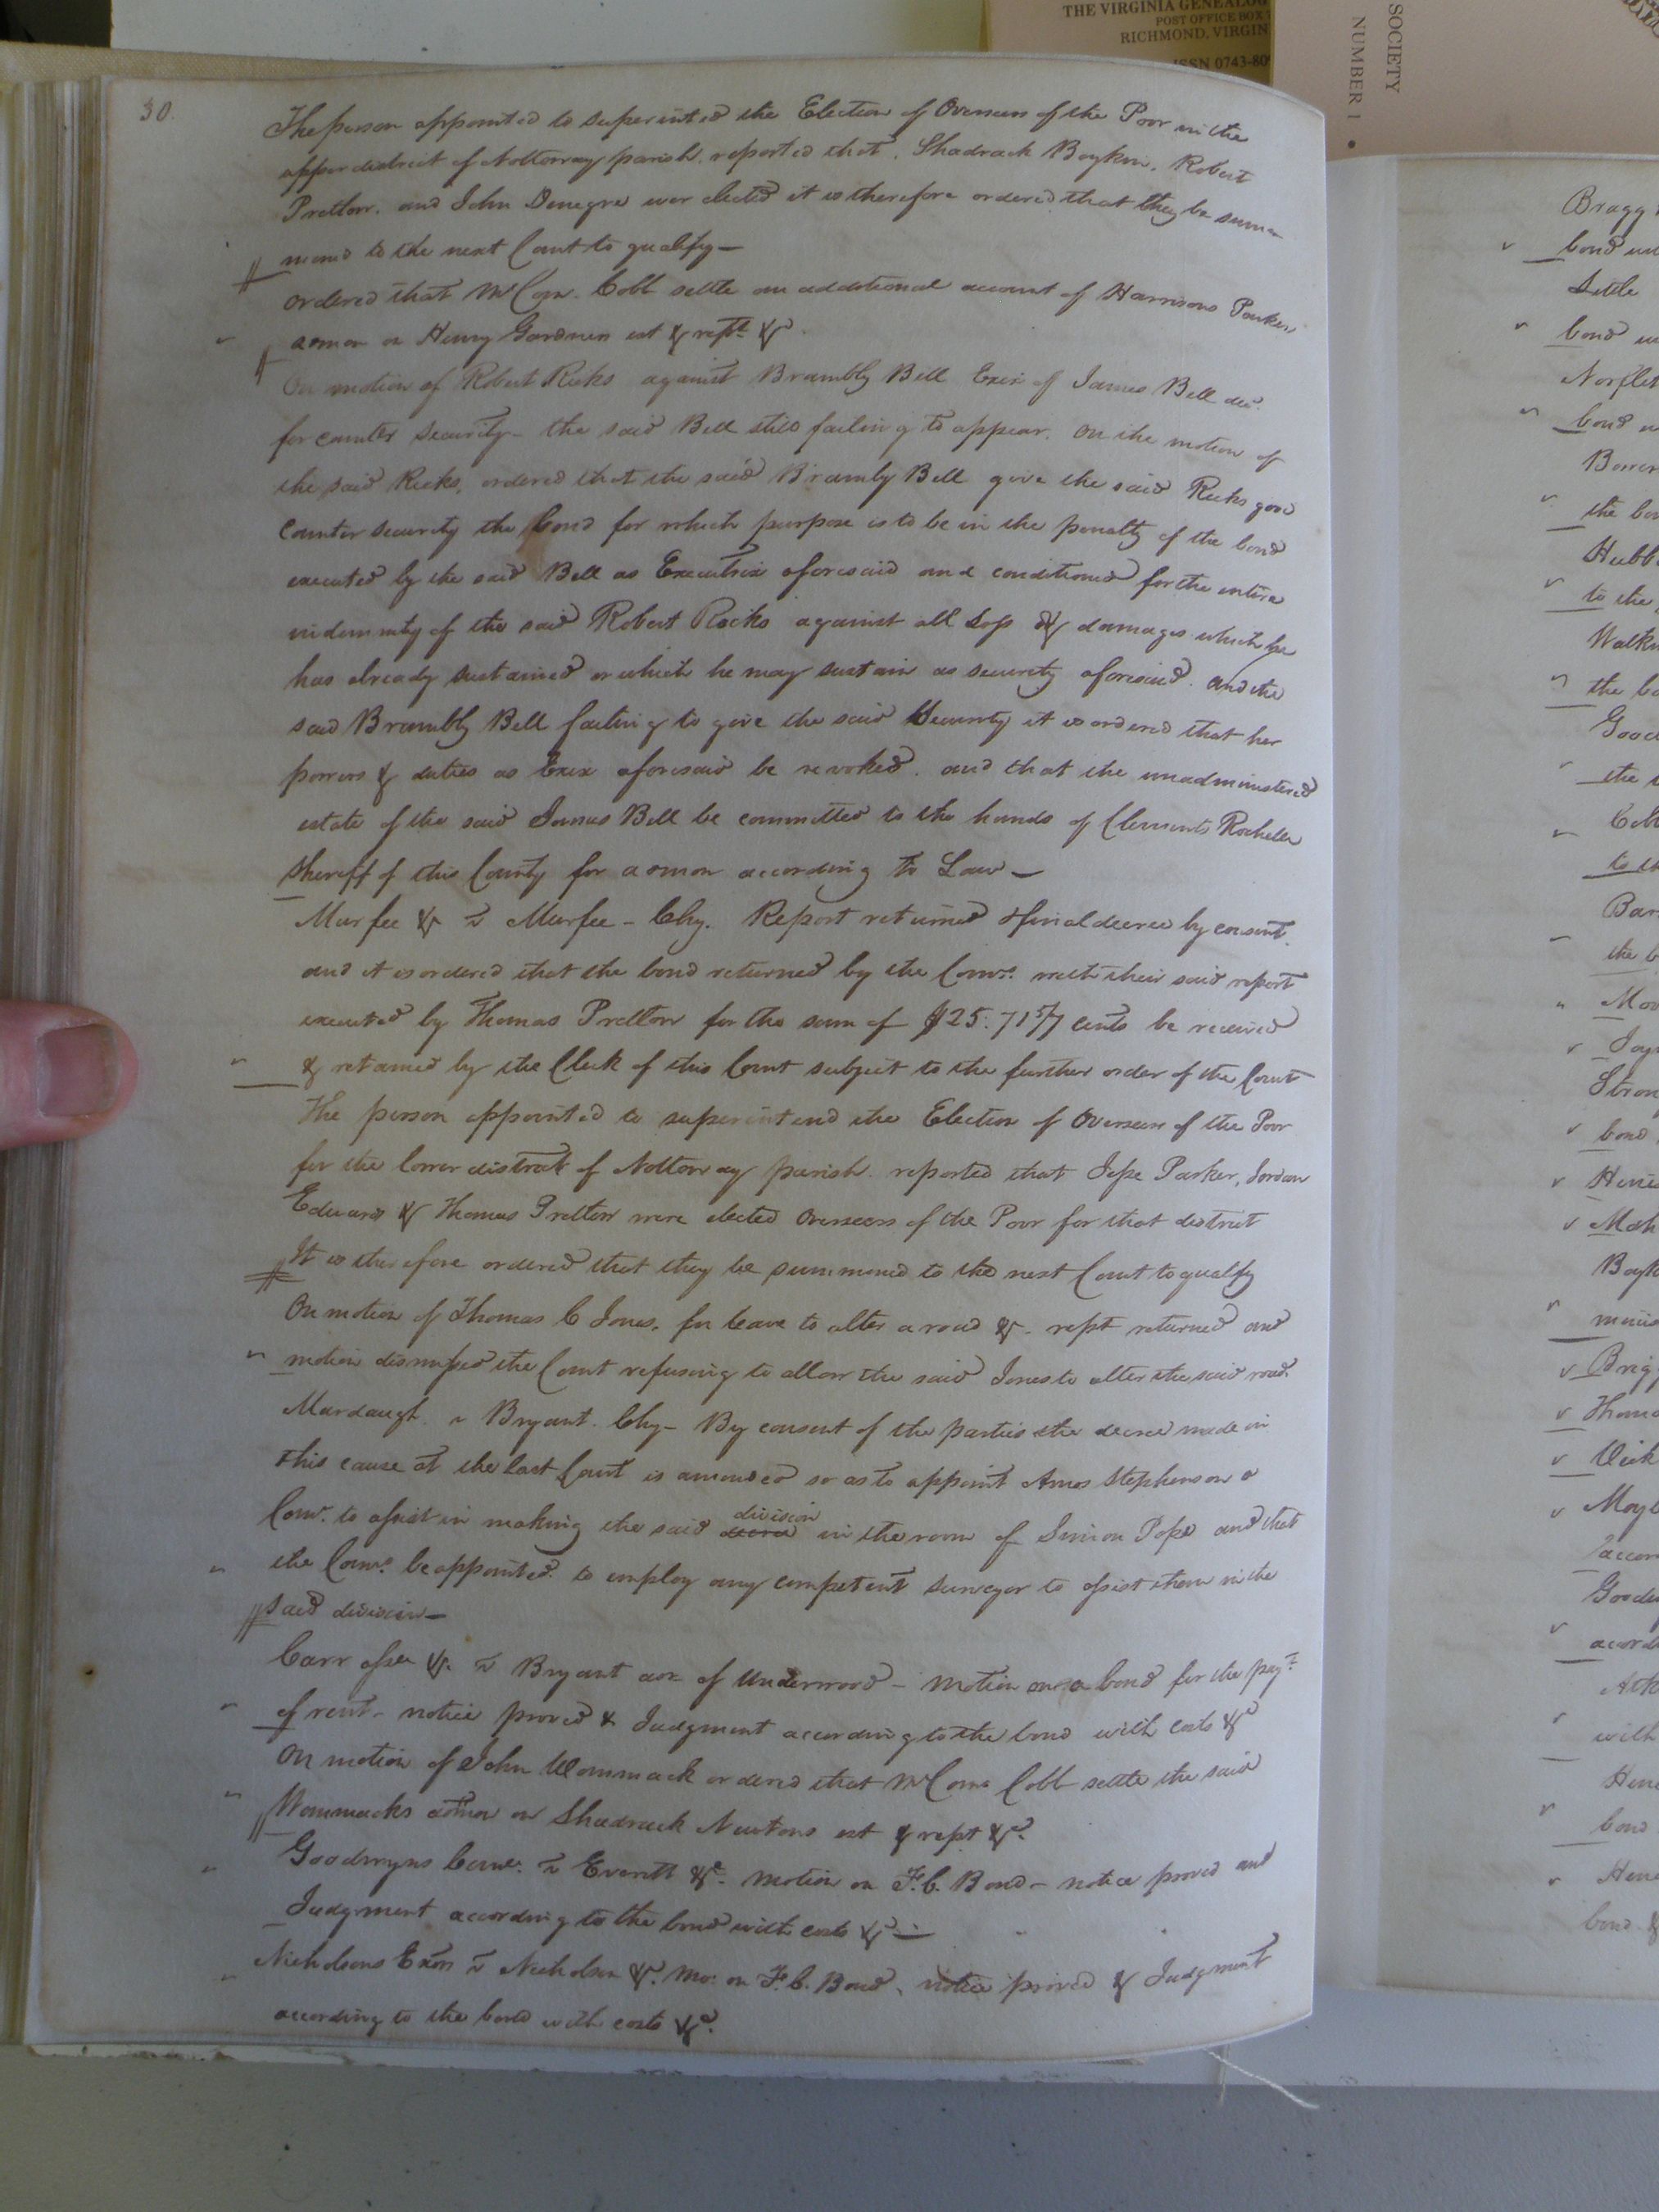 THE VIRGINIA GENEALOG
POST OFFICE BOX 7
RICHMOND, VIRGIN
ISSN 0743-80
SOCIETY
NUMBER 1 •
30.
The person appointed to superintend the Election of Overseers of the Poor in the
upper district of Nottoway parish. reported that. Shadrack Boykin, Robert
Pretlow. and John Denegre wer elected it is therefore ordered that they be summ
moned to the next Court to qualify—
Ordered that Mr Com. Cobb settle an additional account of Harrisons Parkers
admon on Henry Gardners est & rept &c.
On motion of Robert Ricks against Brambly Bell Exix of James Bell decd.
for counter security – the said Bell still failing to appear. On the motion of
the said Ricks, ordered that the said Brambly Bell give the said Ricks good
Counter security the bond for which purpose is to be in the penalty of the bond
executed by the said Bell as Executrix aforesaid and conditioned for the entire
indemnity of the said Robert Ricks against all loss & damages which he
has already sustained or which he may sustain as security aforesaid. and the
said Brambly Bell failing to give the said Security it is ordered that her
powers & duties as Exix aforesaid be revoked. and that the unadministered
estate of the said James Bell be committed to the hands of Clements Rochelle
Sheriff of this County for admon according to Law—
Murfee &c v Murfee – Chy. Report returned & final decree by consent.
and it is ordered that the bond returned by the Comrs. with their said report
executed by Thomas Pretlow for the sum of $25.71 5/7 cents be received
& retained by the Clerk of this Court subject to the further order of the Court
The person appointed to superintend the Election of Overseers of the Poor
for the lower district of Nottoway parish reported that Jesse Parker, Jordan
Edwards & Thomas Pretlow were elected Overseers of the Poor for that district
It is therefore ordered that they be summoned to the next Court to qualify
On motion of Thomas C Jones. for leave to alter a road &c. rept returned and
motion dismissed the Court refusing to allow the said Jones to alter the said road.
Murdaugh v Bryant. Chy – By consent of the parties the decree made in
this cause at the last Court is amended so as to appoint Amos Stephenson a
Comr. to assist in making the said decree division in the room of Simion Pope and that
the Comrs. be appointed to employ any competent surveyor to assist them in the
said division—
Carr assee &c. v Bryant adr of Underwood – Motion on a bond for the payt.
of rent – notice proved & Judgment according to the bond with costs &c
On motion of John Wommack ordered that Mr Comr Cobb settle the said
Wommacks admon on Shadrack Newtons est & rept &c.
Goodwyns Comr. v Everitt &c. motion on F.C. Bond – notice proved and
Judgment according to the bond with costs &c —
Nicholsons Exors v Nicholson &c. mo: on F.C. Bond. notice proved & Judgment
according to the bond with costs &c.
Bragg
bond
Settle
bond
Norflet
bond
the bo
Hubb
to the
Walk
the bo
Good
the
Cobb
to th
Bar
the b
Stron
bond
bond
with
bond
bond &